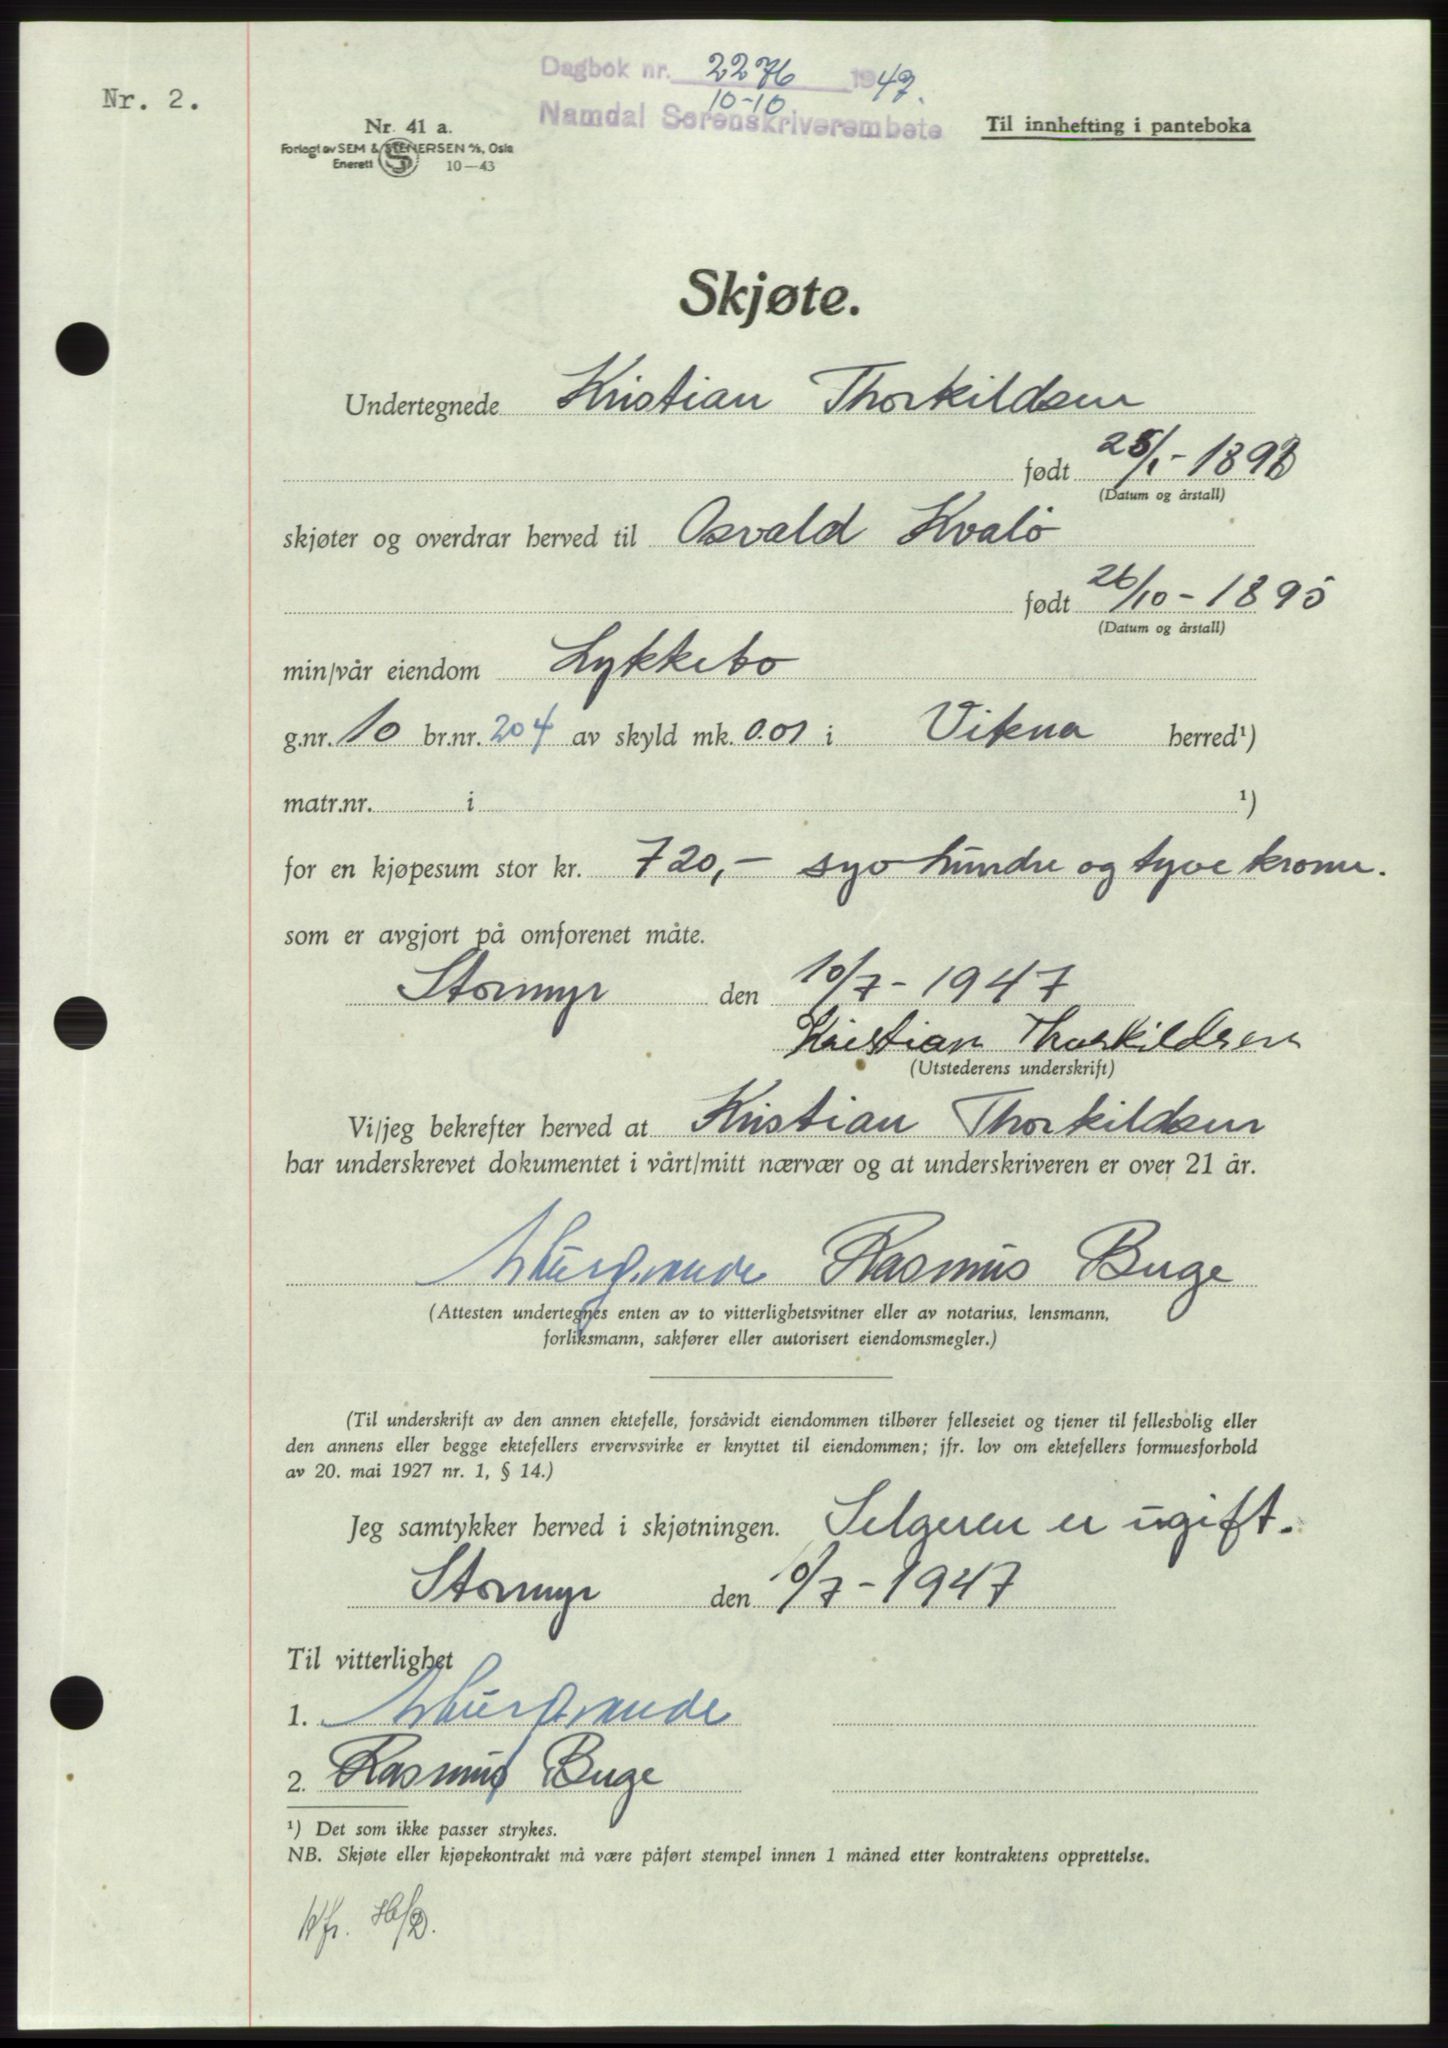 Nr. 2.
Dagbok nr. 2276 1947.
10-10
Namdal Sorenskriverembete
Nr. 41 a.
Forlagt av SEM & STENERSEN A/S, Oslo
Enerett 10—43
Til innhefting i panteboka
Skjøte.
Undertegnede Kristian Thorkildsen
født 25/1-1898
(Datum og årstall)
skjøter og overdrar herved til Osvald Kvalö
født 26/10-1895
(Datum og årstall)
min/vår eiendom Lykkebo
g.nr. 10 br.nr. 204 av skyld mk. 0.01 i Vikna herred¹)
matr.nr. i ¹)
for en kjøpesum stor kr. 720,- syv hundre og tyve kroner.
som er avgjort på omforenet måte.
Stormyr den 10/7-1947
Kristian Thorkildsen
(Utstederens underskrift)
Vi/jeg bekrefter herved at Kristian Thorkildsen
har underskrevet dokumentet i vårt/mitt nærvær og at underskriveren er over 21 år.
Rasmus Buge
(Attesten undertegnes enten av to vitterlighetsvitner eller av notarius, lensmann,
forliksmann, sakfører eller autorisert eiendomsmegler.)
(Til underskrift av den annen ektefelle, forsåvidt eiendommen tilhører felleseiet og tjener til fellesbolig eller
den annens eller begge ektefellers ervervsvirke er knyttet til eiendommen; jfr. lov om ektefellers formuesforhold
av 20. mai 1927 nr. 1, § 14.)
Jeg samtykker herved i skjøtningen. Selgeren er ugift.
Stormyr den 10/7-1947
Til vitterlighet
1.
2. Rasmus Buge
¹) Det som ikke passer strykes.
NB. Skjøte eller kjøpekontrakt må være påført stempel innen 1 måned etter kontraktens opprettelse.